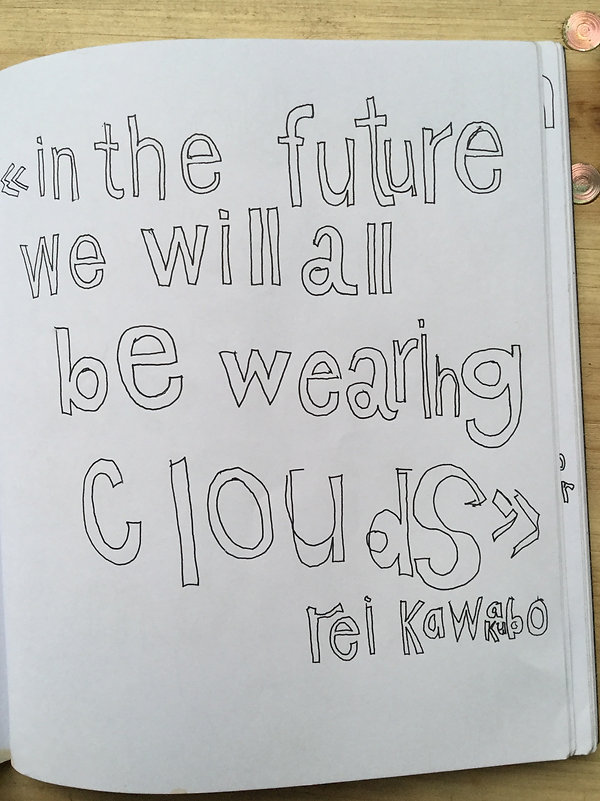 «in the future
we will all
be wearing
clouds»
rei kawakubo